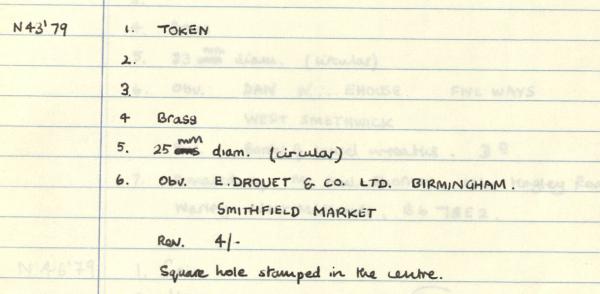 N43'79 1. TOKEN
2.
3.
4 Brass
5. 25 mm diam. (circular)
6. Obv. E. DROUET & CO. LTD. BIRMINGHAM.
SMITHFIELD MARKET
Rev. 4/-
Square hole stamped in the centre.